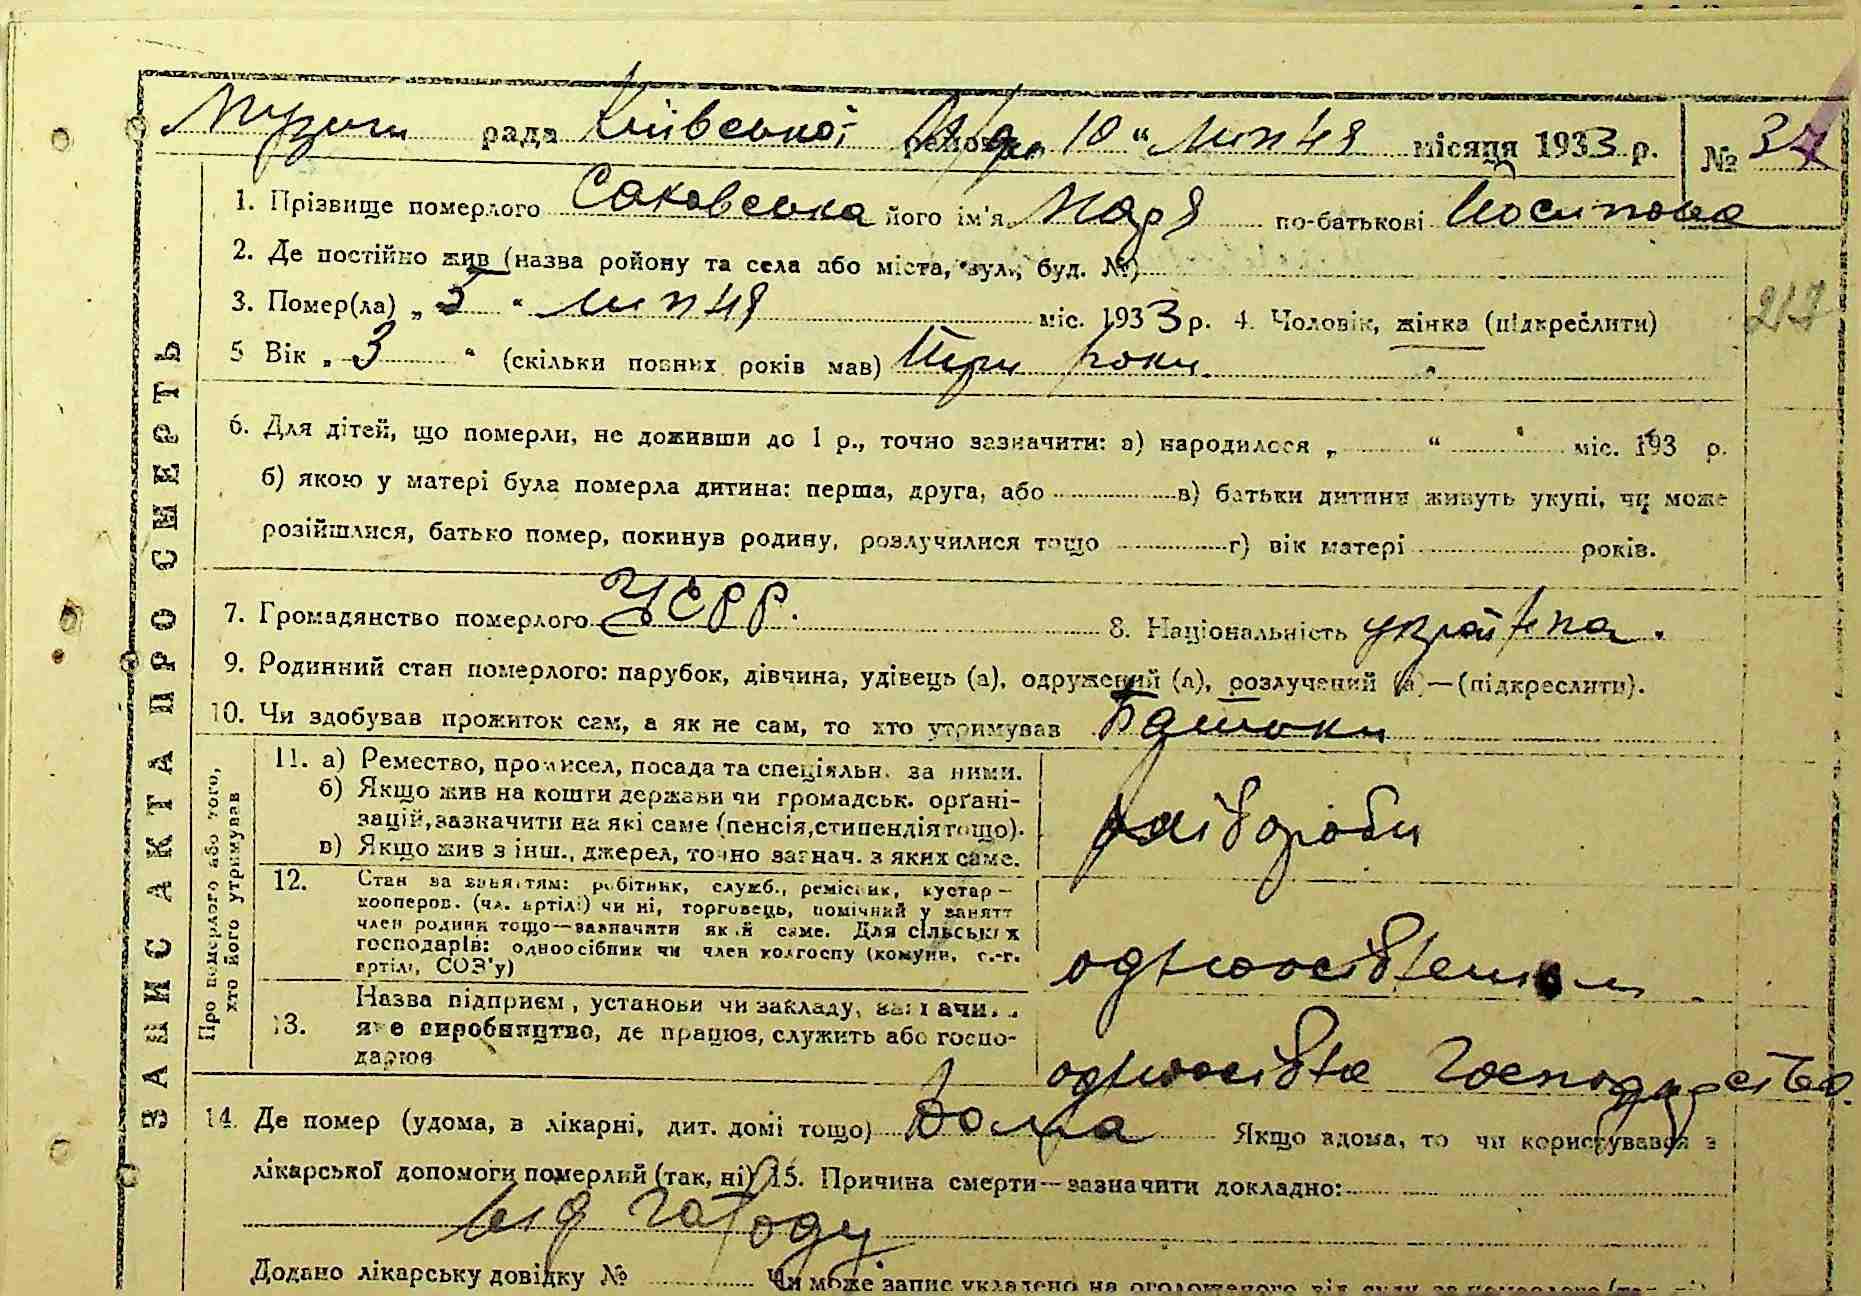 Музыги рада Київської района 10 " Липня місяця 1933 р. № 37
1. Прізвище померлого Саковська його ім'я Марія по-батькові Йосипова
2. Де постійно жив (назва ройону та села або міста, вул., буд. №)
3. Помер(ла) „ 5 " Липня міс. 1933 р. 4. Чоловік, жінка (підкреслити)
217
5 Вік „ 3 " (скільки повних років мав) Три роки. "
6. Для дітей, що померли, не доживши до 1 р., точно зазначити: а) народилося „ " міс. 193 р.
б) якою у матері була померла дитина: перша, друга, або в) батьки дитини живуть укупі, чи може
розійшлися, батько помер, покинув родину, розлучилися тощо г) вік матері років.
7. Громадянство померлого УСРР. 8. Національність українка.
9. Родинний стан померлого: парубок, дівчина, удівець (а), одружений (а), розлучений (а)—(підкреслити).
10. Чи здобував прожиток сам, а як не сам, то хто утримував Батьки
11. а) Ремество, промисел, посада та спеціяльн. за ними.
б) Якщо жив на кошти держави чи громадськ. органі-
зацій, зазначити на які саме (пенсія, стипендія тощо).
в) Якщо жив з інш., джерел, точно зазнач. з яких саме.
хлібороби
12. Стан за заняттям: робітник, служб., ремісник, кустар—
кооперов. (чл. артілі) чи ні, торговець, помічний у занятт
член родини тощо—зазначити який саме. Для сільських
господарів: одноосібник чи член колгоспу (комуни, с.-г.
артілі, СОЗ'у)
одноосібники
13. Назва підприєм, установи чи закладу,
яке виробництво, де працює, служить або госпо-
дарює
одноосібне господарство.
Про померлого або того,
хто його утримував
ЗАПИС АКТА ПРО СМЕРТЬ
14. Де помер (удома, в лікарні, дит. домі тощо) Дома Якщо вдома, то чи користувався з
лікарської допомоги померлий (так, ні) 15. Причина смерти—зазначити докладно:
від голоду
Додано лікарську довідку № Чи може запис укладено на оголошеного від суду за померлого